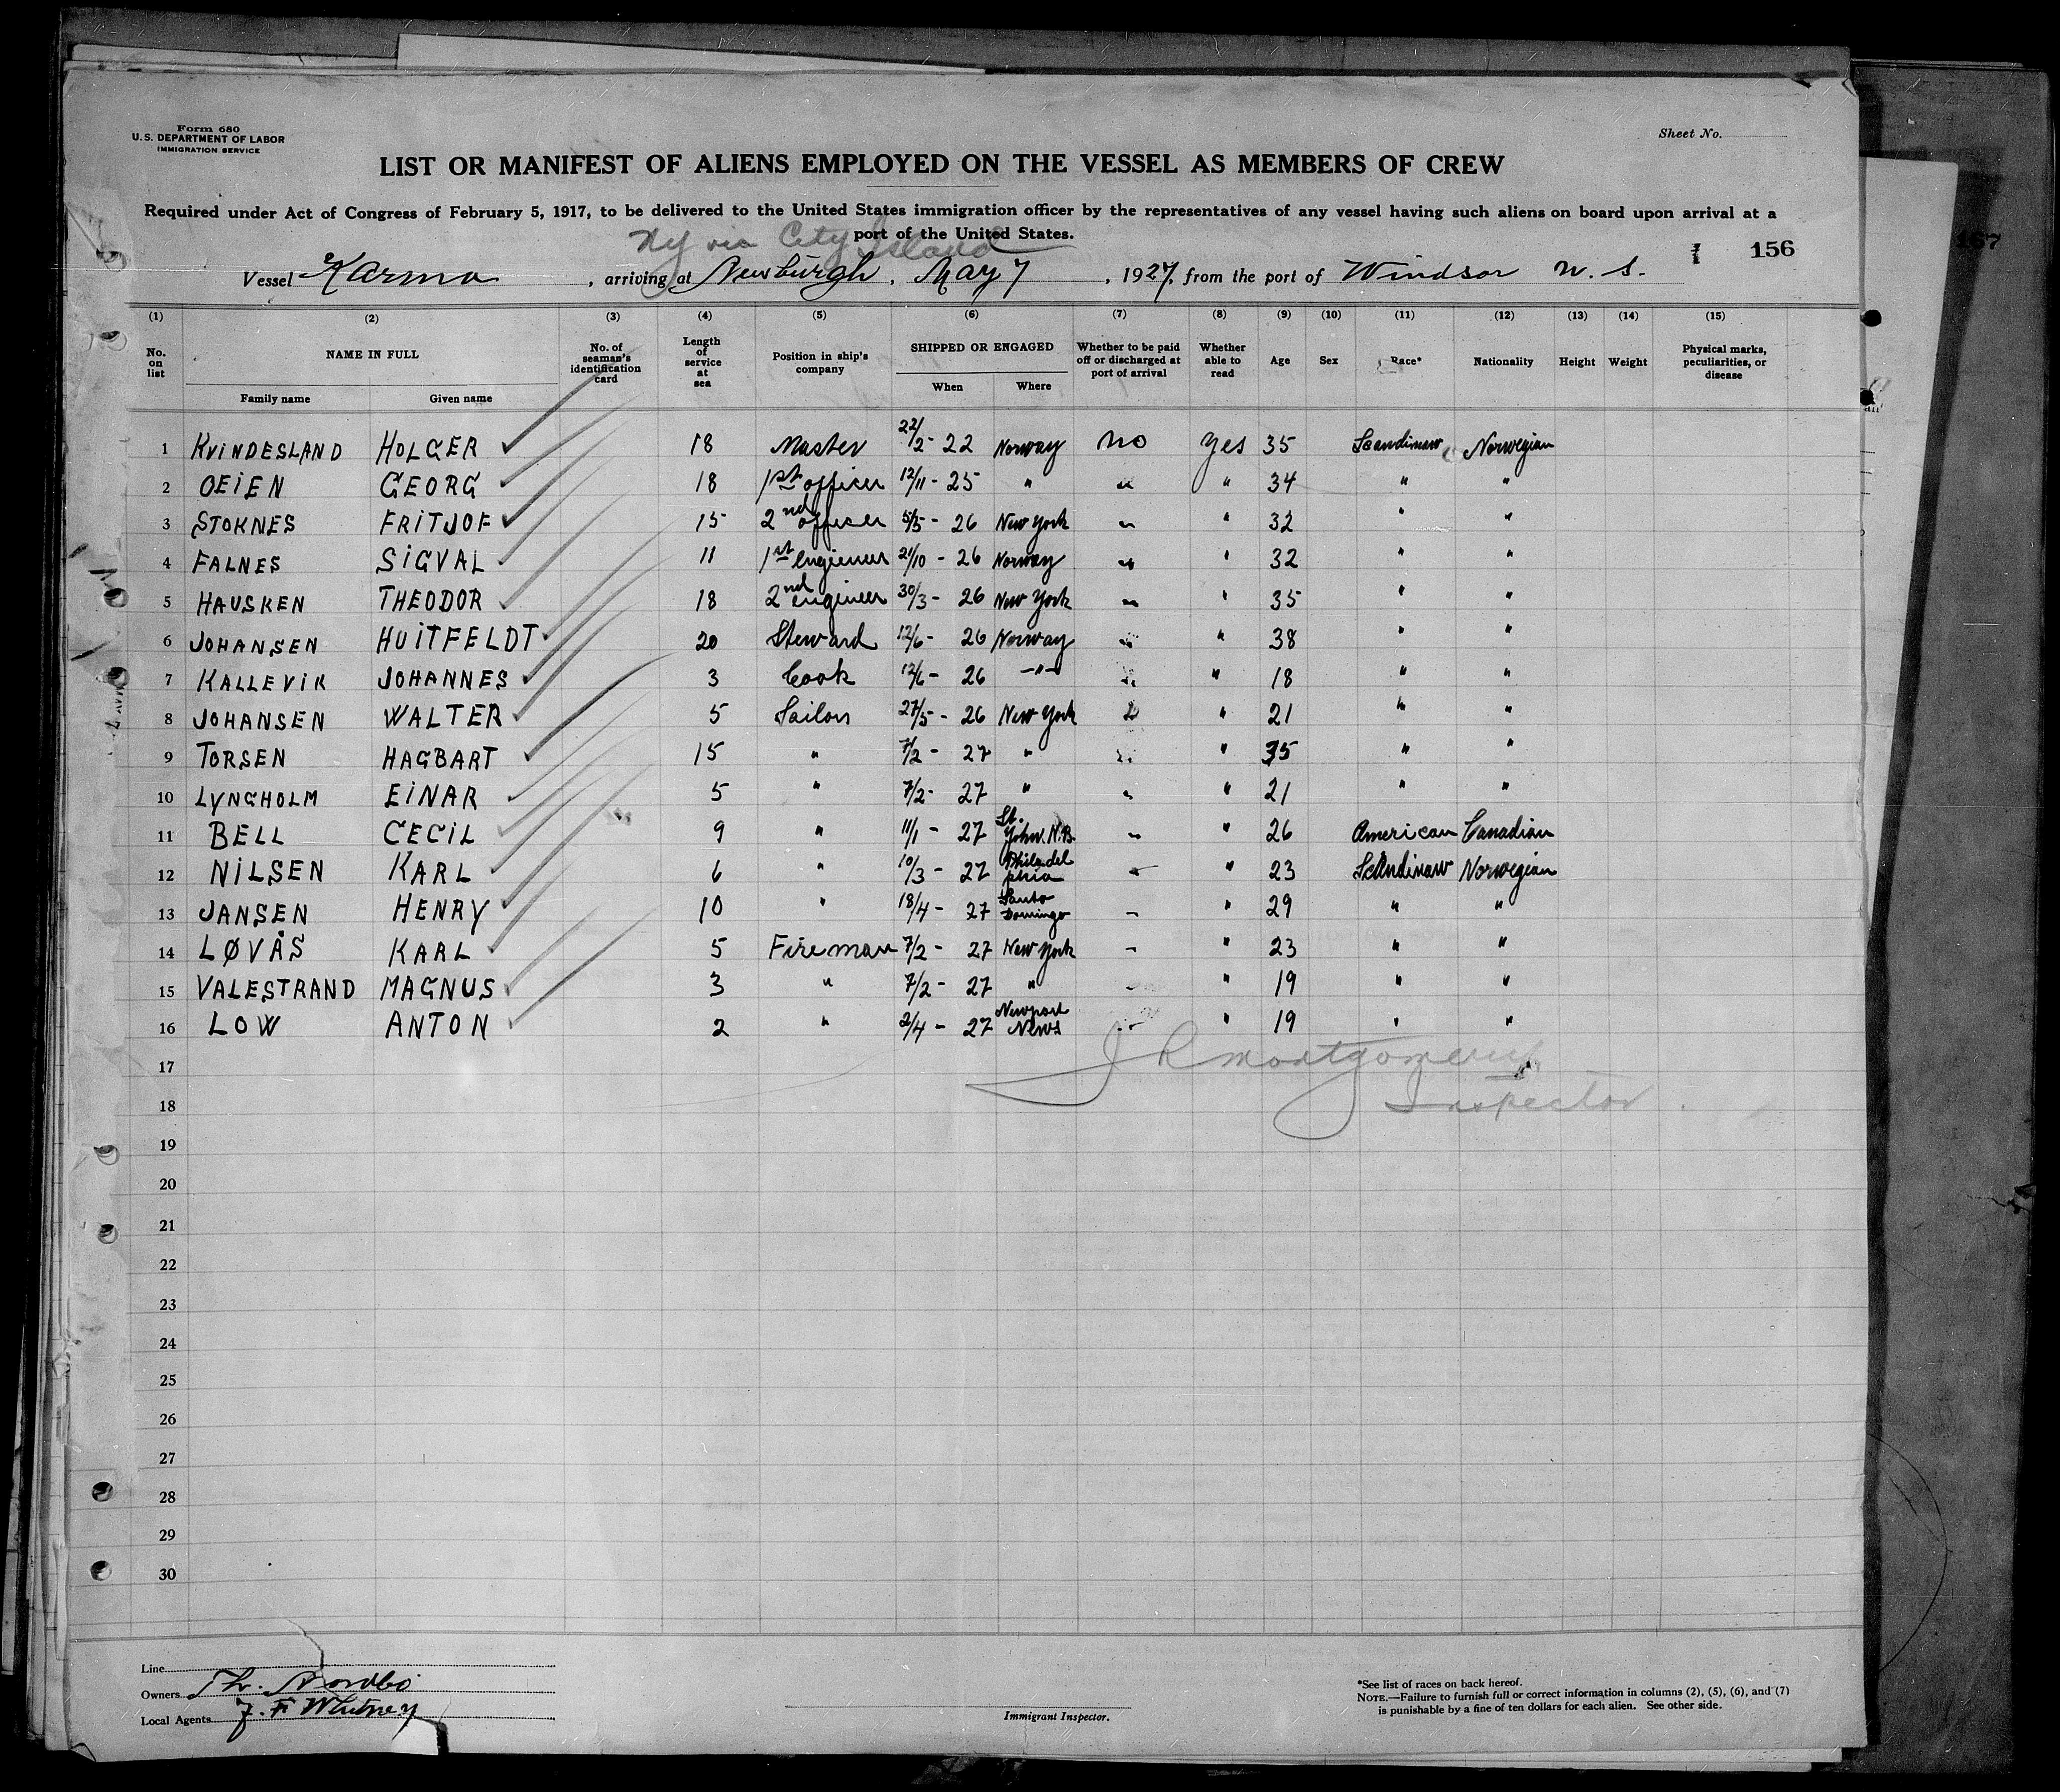 Form 680
U. S. DEPARTMENT OF LABOR
IMMIGRATION SERVICE
Sheet No.
LIST OR MANIFEST OF ALIENS EMPLOYED ON THE VESSEL AS MEMBERS OF CREW
Required under Act of Congress of February 5, 1917, to be delivered to the United States immigration officer by the representatives of any vessel having such aliens on board upon arrival at a
port of the United States.
NY via City Island
156
167
Vessel Karmo, arriving at Newburgh, May 7, 1927, from the port of Windsor N. S.
(1) (2) (3) (4) (5) (6) (7) (8) (9) (10) (11) (12) (13) (14) (15)
No. on list NAME IN FULL Family name Given name No. of seaman's identification card Length of service at sea Position in ship's company SHIPPED OR ENGAGED When Where Whether to be paid off or discharged at port of arrival Whether able to read Age Sex Race* Nationality Height Weight Physical marks, peculiarities, or disease
1 KVINDESLAND HOLGER 18 Master 22/2 - 22 Norway No Yes 35 Scandinaw Norwegian
2 OEIEN GEORG 18 1st officer 12/11 - 25 " " " 34 " "
3 STOKNES FRITJOF 15 2nd officer 5/5 - 26 New York " " 32 " "
4 FALNES SIGVAL 11 1st engieneer 21/10 - 26 Norway " " 32 " "
5 HAUSKEN THEODOR 18 2nd engineer 30/3 - 26 New York " " 35 " "
6 JOHANSEN HUITFELDT 20 Steward 12/6 - 26 Norway " " 38 " "
7 KALLEVIK JOHANNES 3 Cook 12/6 - 26 -"- " " 18 " "
8 JOHANSEN WALTER 5 Sailor 27/5 - 26 New York " " 21 " "
9 TORSEN HAGBART 15 " 7/2 - 27 " " " 35 " "
10 LYNGHOLM EINAR 5 " 7/2 - 27 " " " 21 " "
11 BELL CECIL 9 " 11/1 - 27 St. John. N.B. " " 26 American Canadian
12 NILSEN KARL 6 " 10/3 - 27 Philadelphia " " 23 Scandinaw Norwegian
13 JANSEN HENRY 10 " 18/4 - 27 Santo Domingo " " 29 " "
14 LØVÅS KARL 5 Fireman 7/2 - 27 New York " " 23 " "
15 VALESTRAND MAGNUS 3 " 7/2 - 27 " " " 19 " "
16 LOW ANTON 2 " 2/4 - 27 Newport News " " 19 " "
17
J R Montgomery
18
Inspector
19
20
21
22
23
24
25
26
27
28
29
30
Line
Owners Th. Nordbo
Local Agents J. F Whitney
Immigrant Inspector.
*See list of races on back hereof.
NOTE.—Failure to furnish full or correct information in columns (2), (5), (6), and (7)
is punishable by a fine of ten dollars for each alien. See other side.